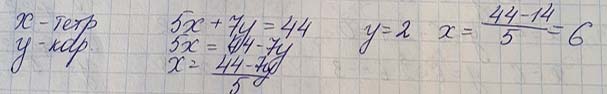 x - тетр 5x + 7y = 44 y = 2 x = (44-14)/5 = 6
y - кар 5x = 44 - 7y
x = (44-7y)/5